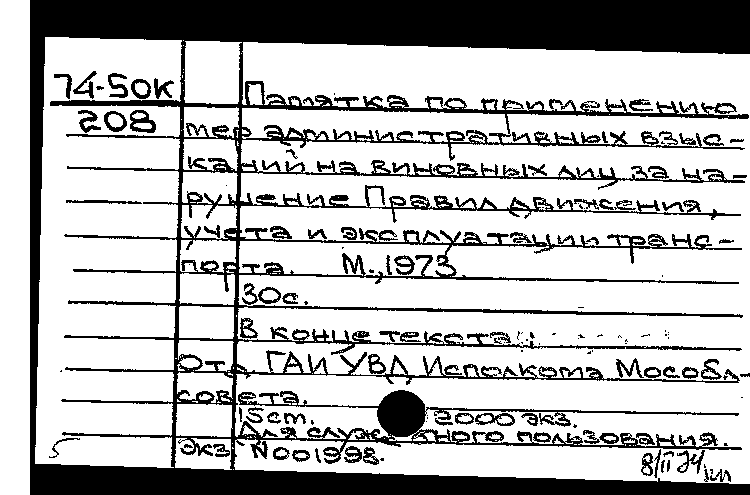 74-50к
208
Памятка по применению
мер административных взыс-
каний на виновных лиц за на-
рушение Правил движения,
учета и эксплуатации транс-
порта. М., 1973.
30с.
В конце текста:
Отд. ГАИ УВД Исполкома Мособл-
совета.
15см. 2000 экз.
Для служебного пользования.
экз N001998.
5